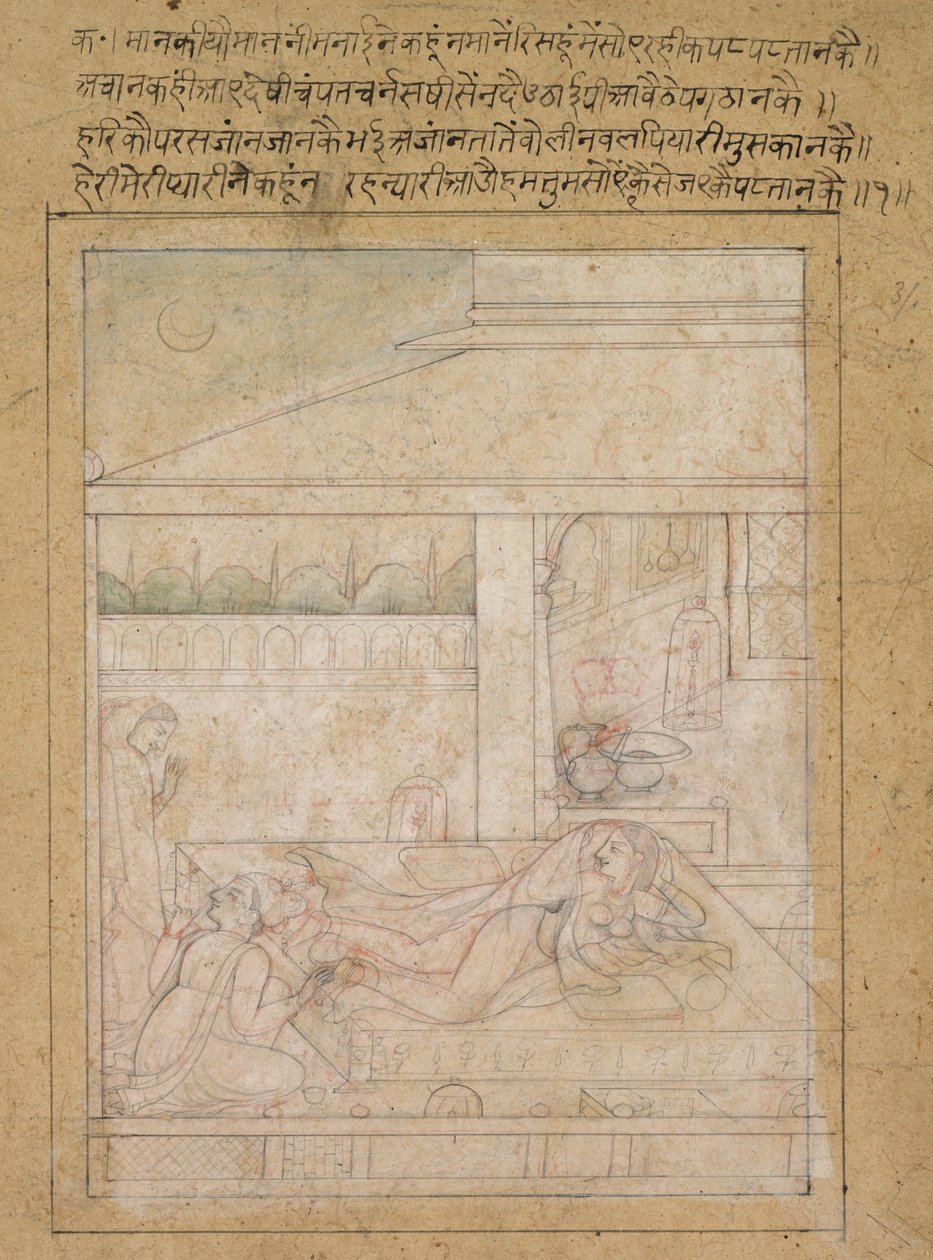 क॰। मानकीयौमाननींमनाईनेकहूंनमानैंरिसहूंमैंसोएरहीकपटपटतानकै॥
अचानकहींआएदेषीचंपतनवर्नसषीसेंनदैउठाईपीआवैठेपगठानकै॥
हरिकौपरसजांनजानकैभईअजांनतातेंवोलीनवलपियारीमुसकानकै॥
हेरीमेरीप्यारीनेकहूंन रहन्यारीआउैहमतुमसोएंकैसेजएकैपटतानकै॥१॥
31.